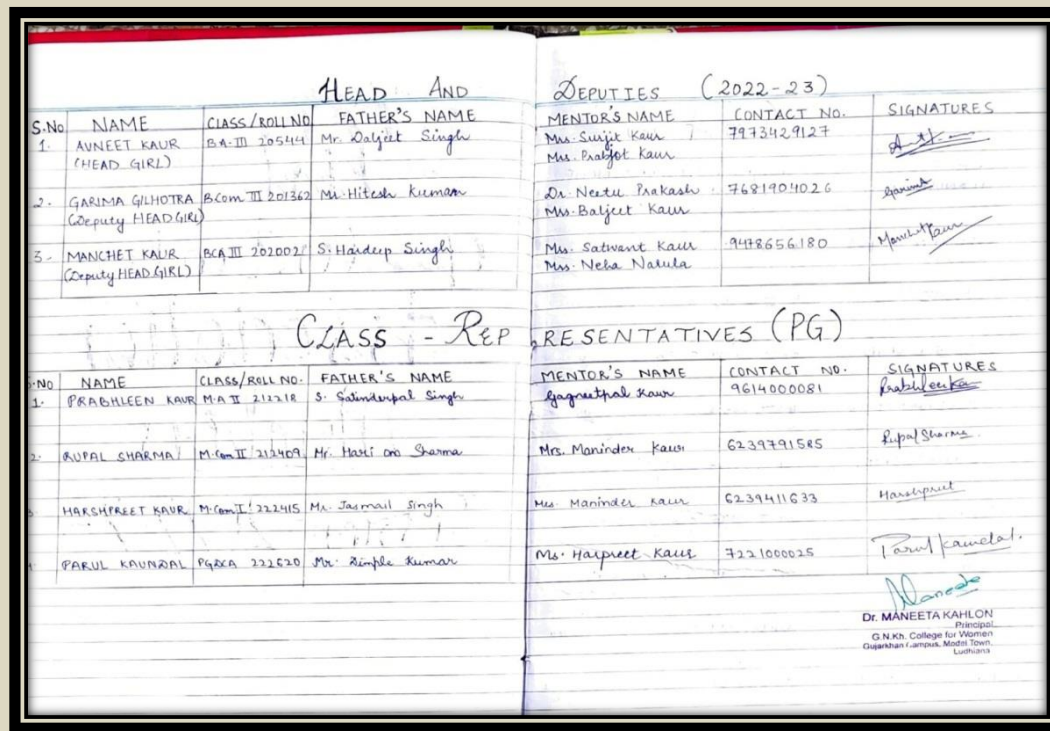 HEAD AND DEPUTIES (2022-23)
S.No NAME CLASS/ROLL NO FATHER'S NAME MENTOR'S NAME CONTACT NO. SIGNATURES
1. AVNEET KAUR BA-III 20544 Mr. Daljeet Singh Mrs. Surjit Kaur 7973429127
(HEAD GIRL) Mrs. Prabjot Kaur
2. GARIMA GILHOTRA BCom III 201362 Mr. Hitesh Kumar Dr. Neetu Prakash 7681904026 Garima
(Deputy HEAD GIRL) Mrs. Baljeet Kaur
3. MANCHET KAUR BCA III 202002 S. Hardeep Singh Ms. Satwant Kaur 9478656180 Manchet Kaur
(Deputy HEAD GIRL) Mrs. Neha Narula
CLASS - REPRESENTATIVES (PG)
S.NO NAME CLASS/ROLL NO. FATHER'S NAME MENTOR'S NAME CONTACT NO. SIGNATURES
1. PRABHLEEN KAUR M.A II 212218 S. Satinderpal Singh Gagneetpal Kaur 9614000081
2. RUPAL SHARMA M.Com II 212409 Mr. Hari om Sharma Mrs. Maninder Kaur 6239791585 Rupal Sharma
HARSHPREET KAUR M.Com I 222415 Mr. Jasmail Singh Mrs. Maninder Kaur 6239411633 Harshpreet
PARUL KAUNDAL PGDCA 222620 Mr. Dimple Kumar Ms. Harpreet Kaur 7221000025 Parul Kaundal.
Maneeta
Dr. MANEETA KAHLON
Principal
G.N.Kh. College for Women
Gujarkhan Campus, Model Town,
Ludhiana